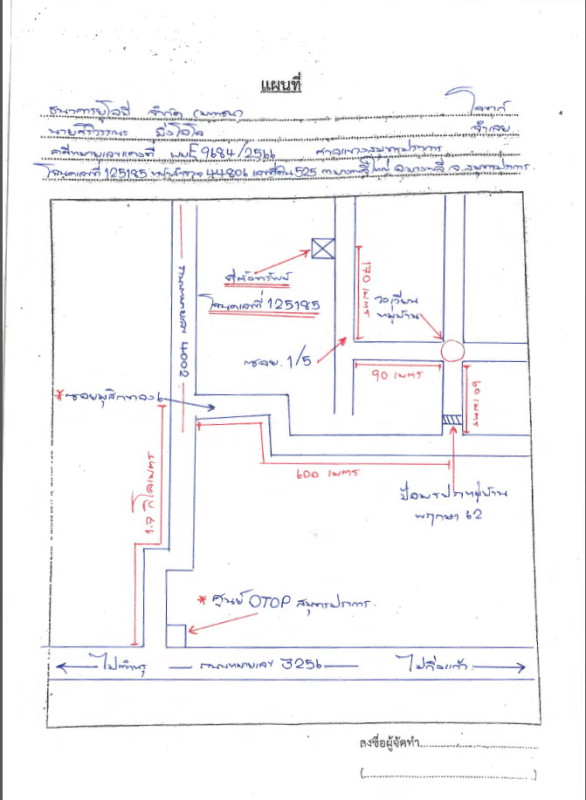 แผนที่
ธนาคารยูโอบี จำกัด (มหาชน) โจทก์
นายศิริวรรณะ จำเลย
คดีหมายเลขแดงที่ ผบE9684/2566 ศาลแขวงสมุทรปราการ
โฉนดเลขที่ 125185 หน้าสำรวจ 44806 เลขที่ดิน 525 ต.บางพลีใหญ่ อ.บางพลี จ.สมุทรปราการ
ถนนหมายเลข 4002
ที่ตั้งทรัพย์
โฉนดเลขที่ 125185
170 เมตร
วงเวียน
หมู่บ้าน
ซอย 1/5
90 เมตร
90 เมตร
*ซอยมุสิกทอง 6
600 เมตร
1.7 กิโลเมตร
ป้อมรปภ.หมู่บ้าน
พฤกษา 62
* ศูนย์ OTOP สมุทรปราการ
ไปตำหรุ
ถนนหมายเลข 3256
ไปกิ่งแก้ว
ลงชื่อผู้จัดทำ
(